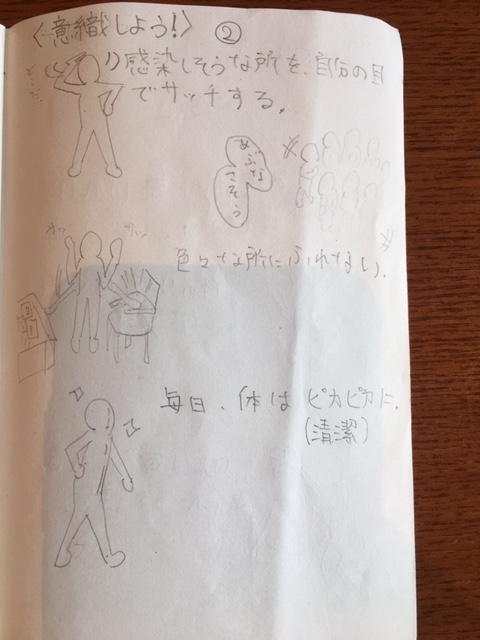 〈意織しよう!〉 ②
1)感染しそうな所を、自分の目
でサッチする。
あぶな
さそう
色々な所にふれない。
毎日、体は ピカピカに。
(清潔)